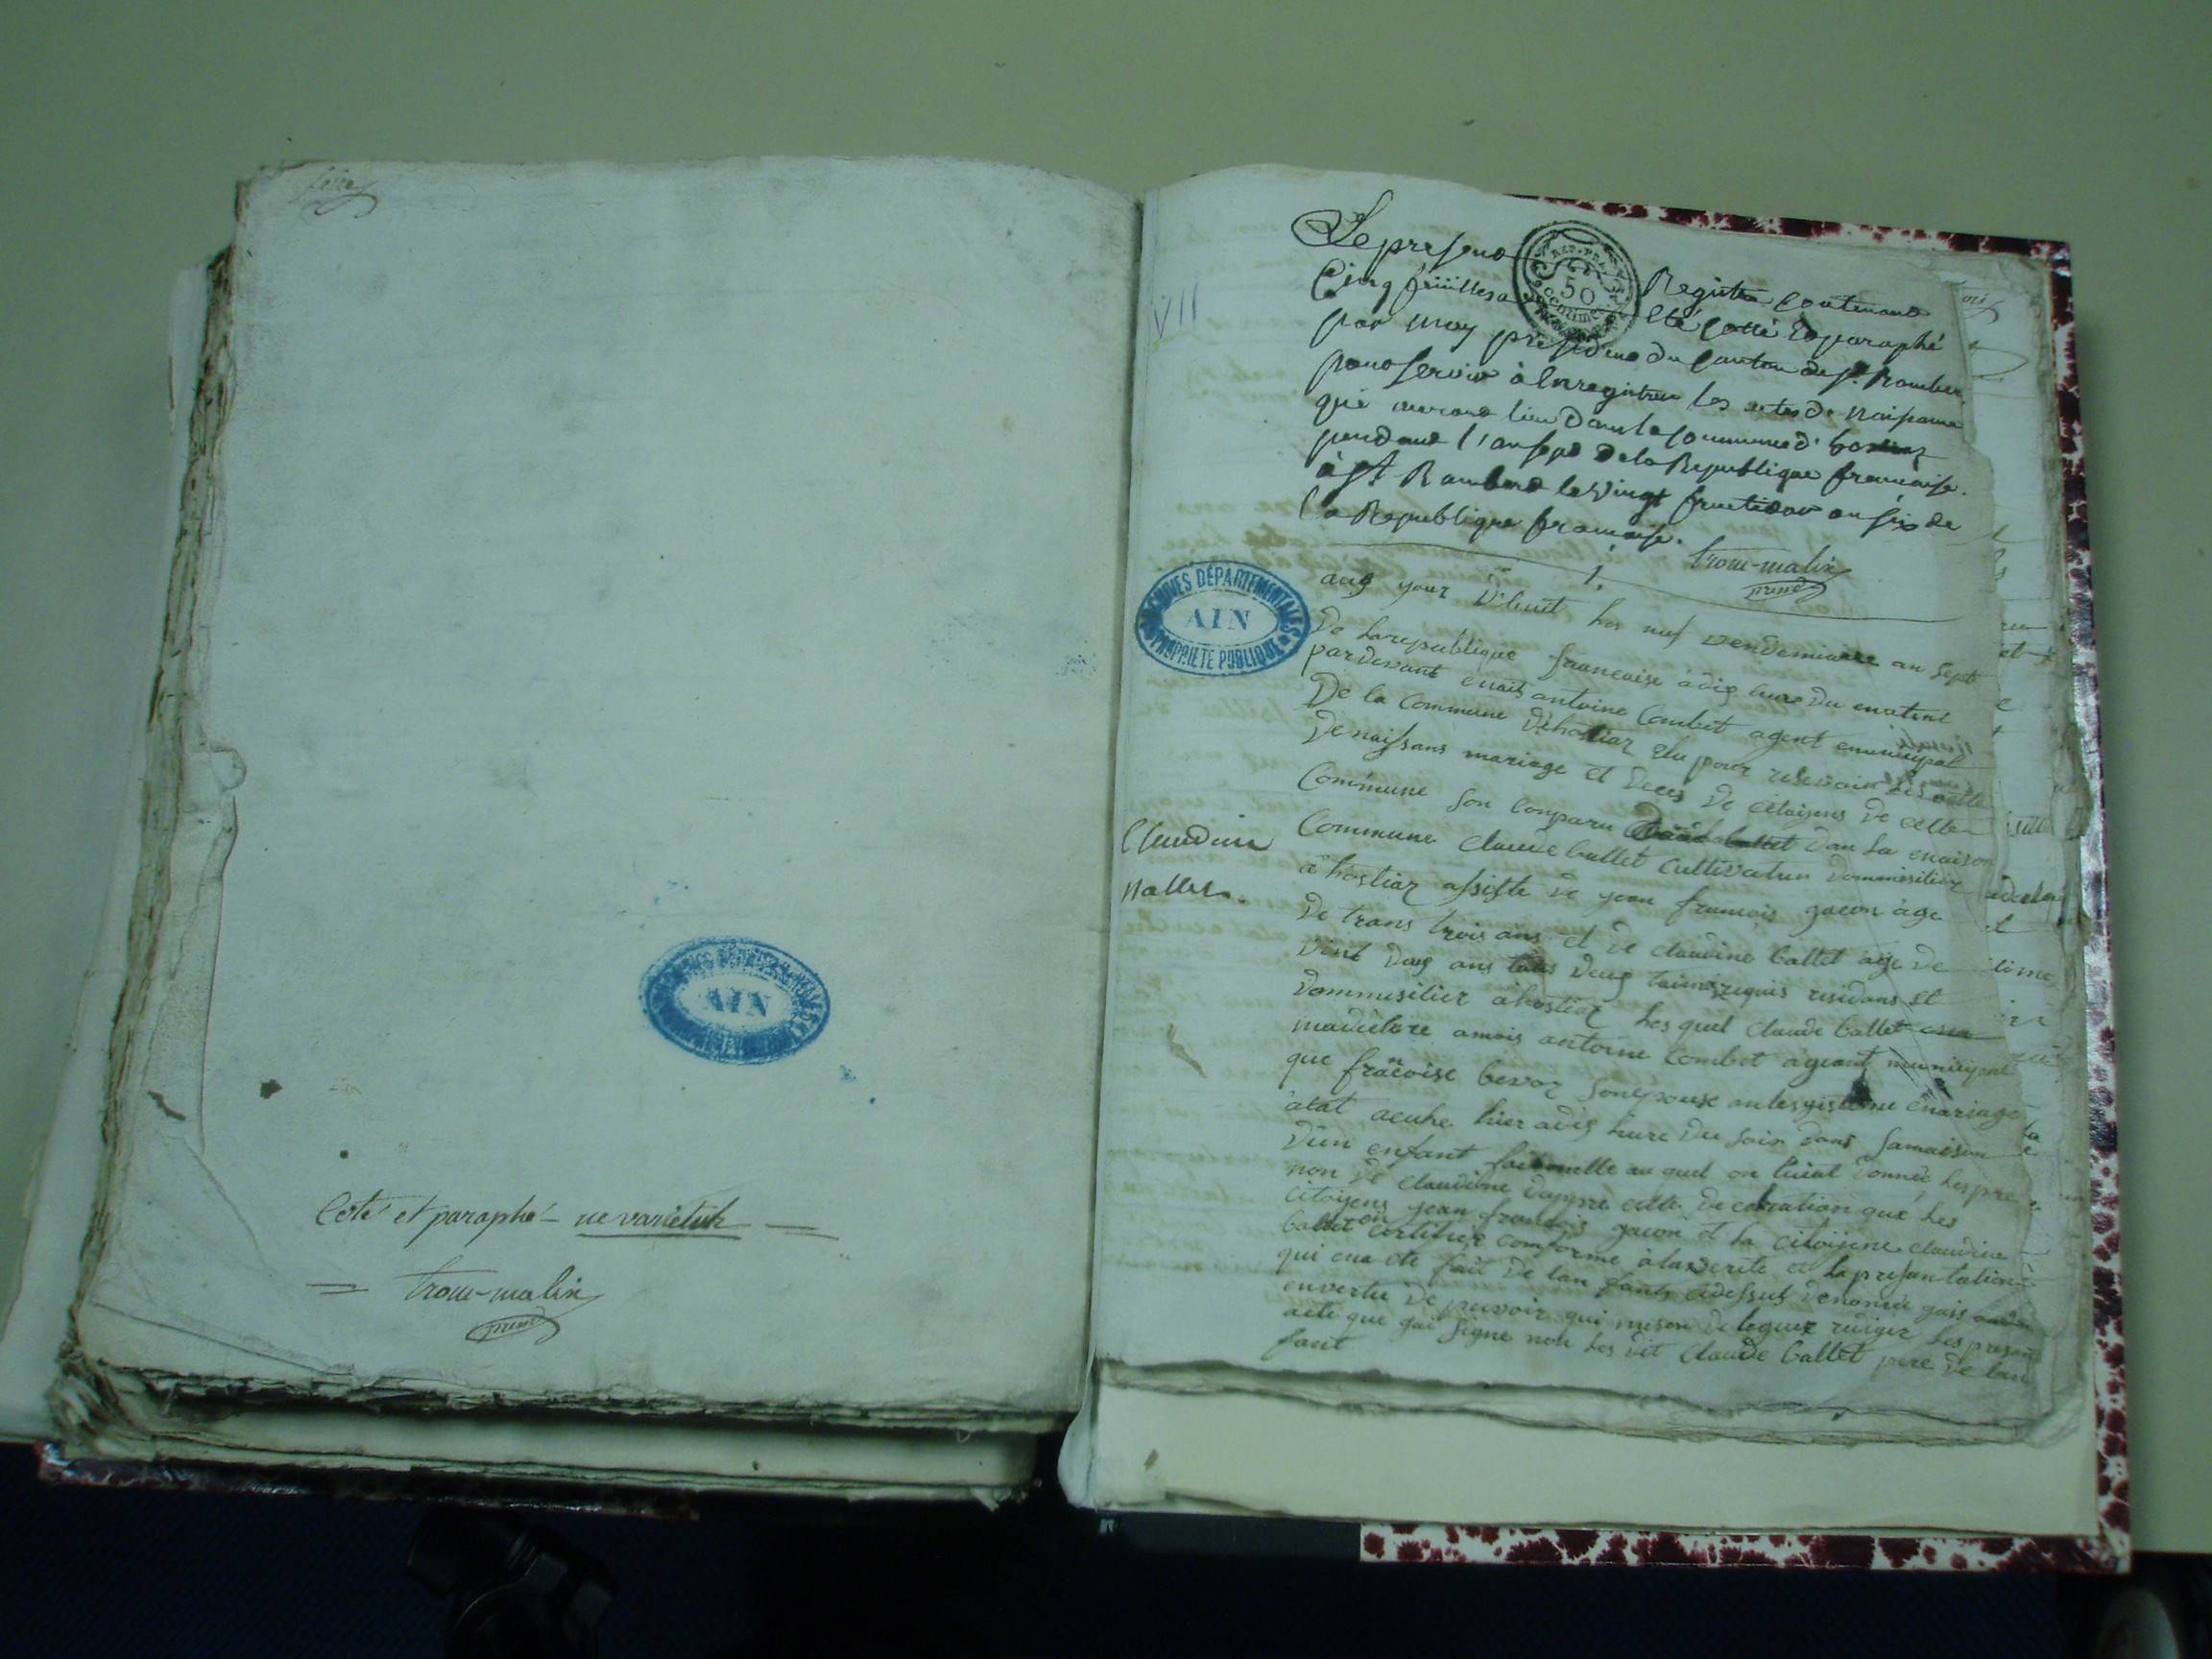 ARCHIVES DÉPARTEMENTALES
AIN
PROPRIÉTÉ PUBLIQUE
Coté et paraphé ne varietur
trocu-malix
présid
VII
Le present Registre contenant
REP. FRA.
50
CENTIMES
Cinq feüilles a été cotté & paraphé
par moy président du Canton de St Rambert
pour servir à Enregistrer les actes de Naissance
qui auront lieu dans la commune d'hostiaz
pendant l'an sept de la Republique francaise.
à St Rambert le vingt fructidor an six de
la Republique francaise.
trocu-malix
présid
1.
ARCHIVES DÉPARTEMENTALES
AIN
PROPRIÉTÉ PUBLIQUE
auj your d'huit les neuf vendemiaire an sept
de la republique francaise a dis hure du matint
pardevant mois antoine Combet agent municipal
De la Commune d'hostiaz elu pour resevoir les acte
De naissans mariage et deces de citoiyens de cette
Commune son conparu dan la maison
Commune Claude ballet cultivatur dommesilier
Claudine
Ballet.
a hostiaz assiste de jean francois gacon age
De trans trois ans et de claudine ballet age de
vint deus ans tous deus taimoz requis residans et
dommisilier a hostiaz les quel Claude ballet
madeclare amois antoine Combet ageant municipal
que francoise bevoz son epouse an lesgistime mariage
atat acuche hier adis hure du soir dans sa maison
dun enfant faimelle au quel on luiat donnee les pre
non de claudine dapre cette decleration que les
citoyens jean francois gacon et la citoiyene claudine
ballet on certifiez conforme a la verite et la presantation
qui ena ete fait de lan fants cidessus denomée gais
en vertu de puvoir qui meson deleguez rediger les present
acte que jai signe non les dit claude ballet pere de lan
fant